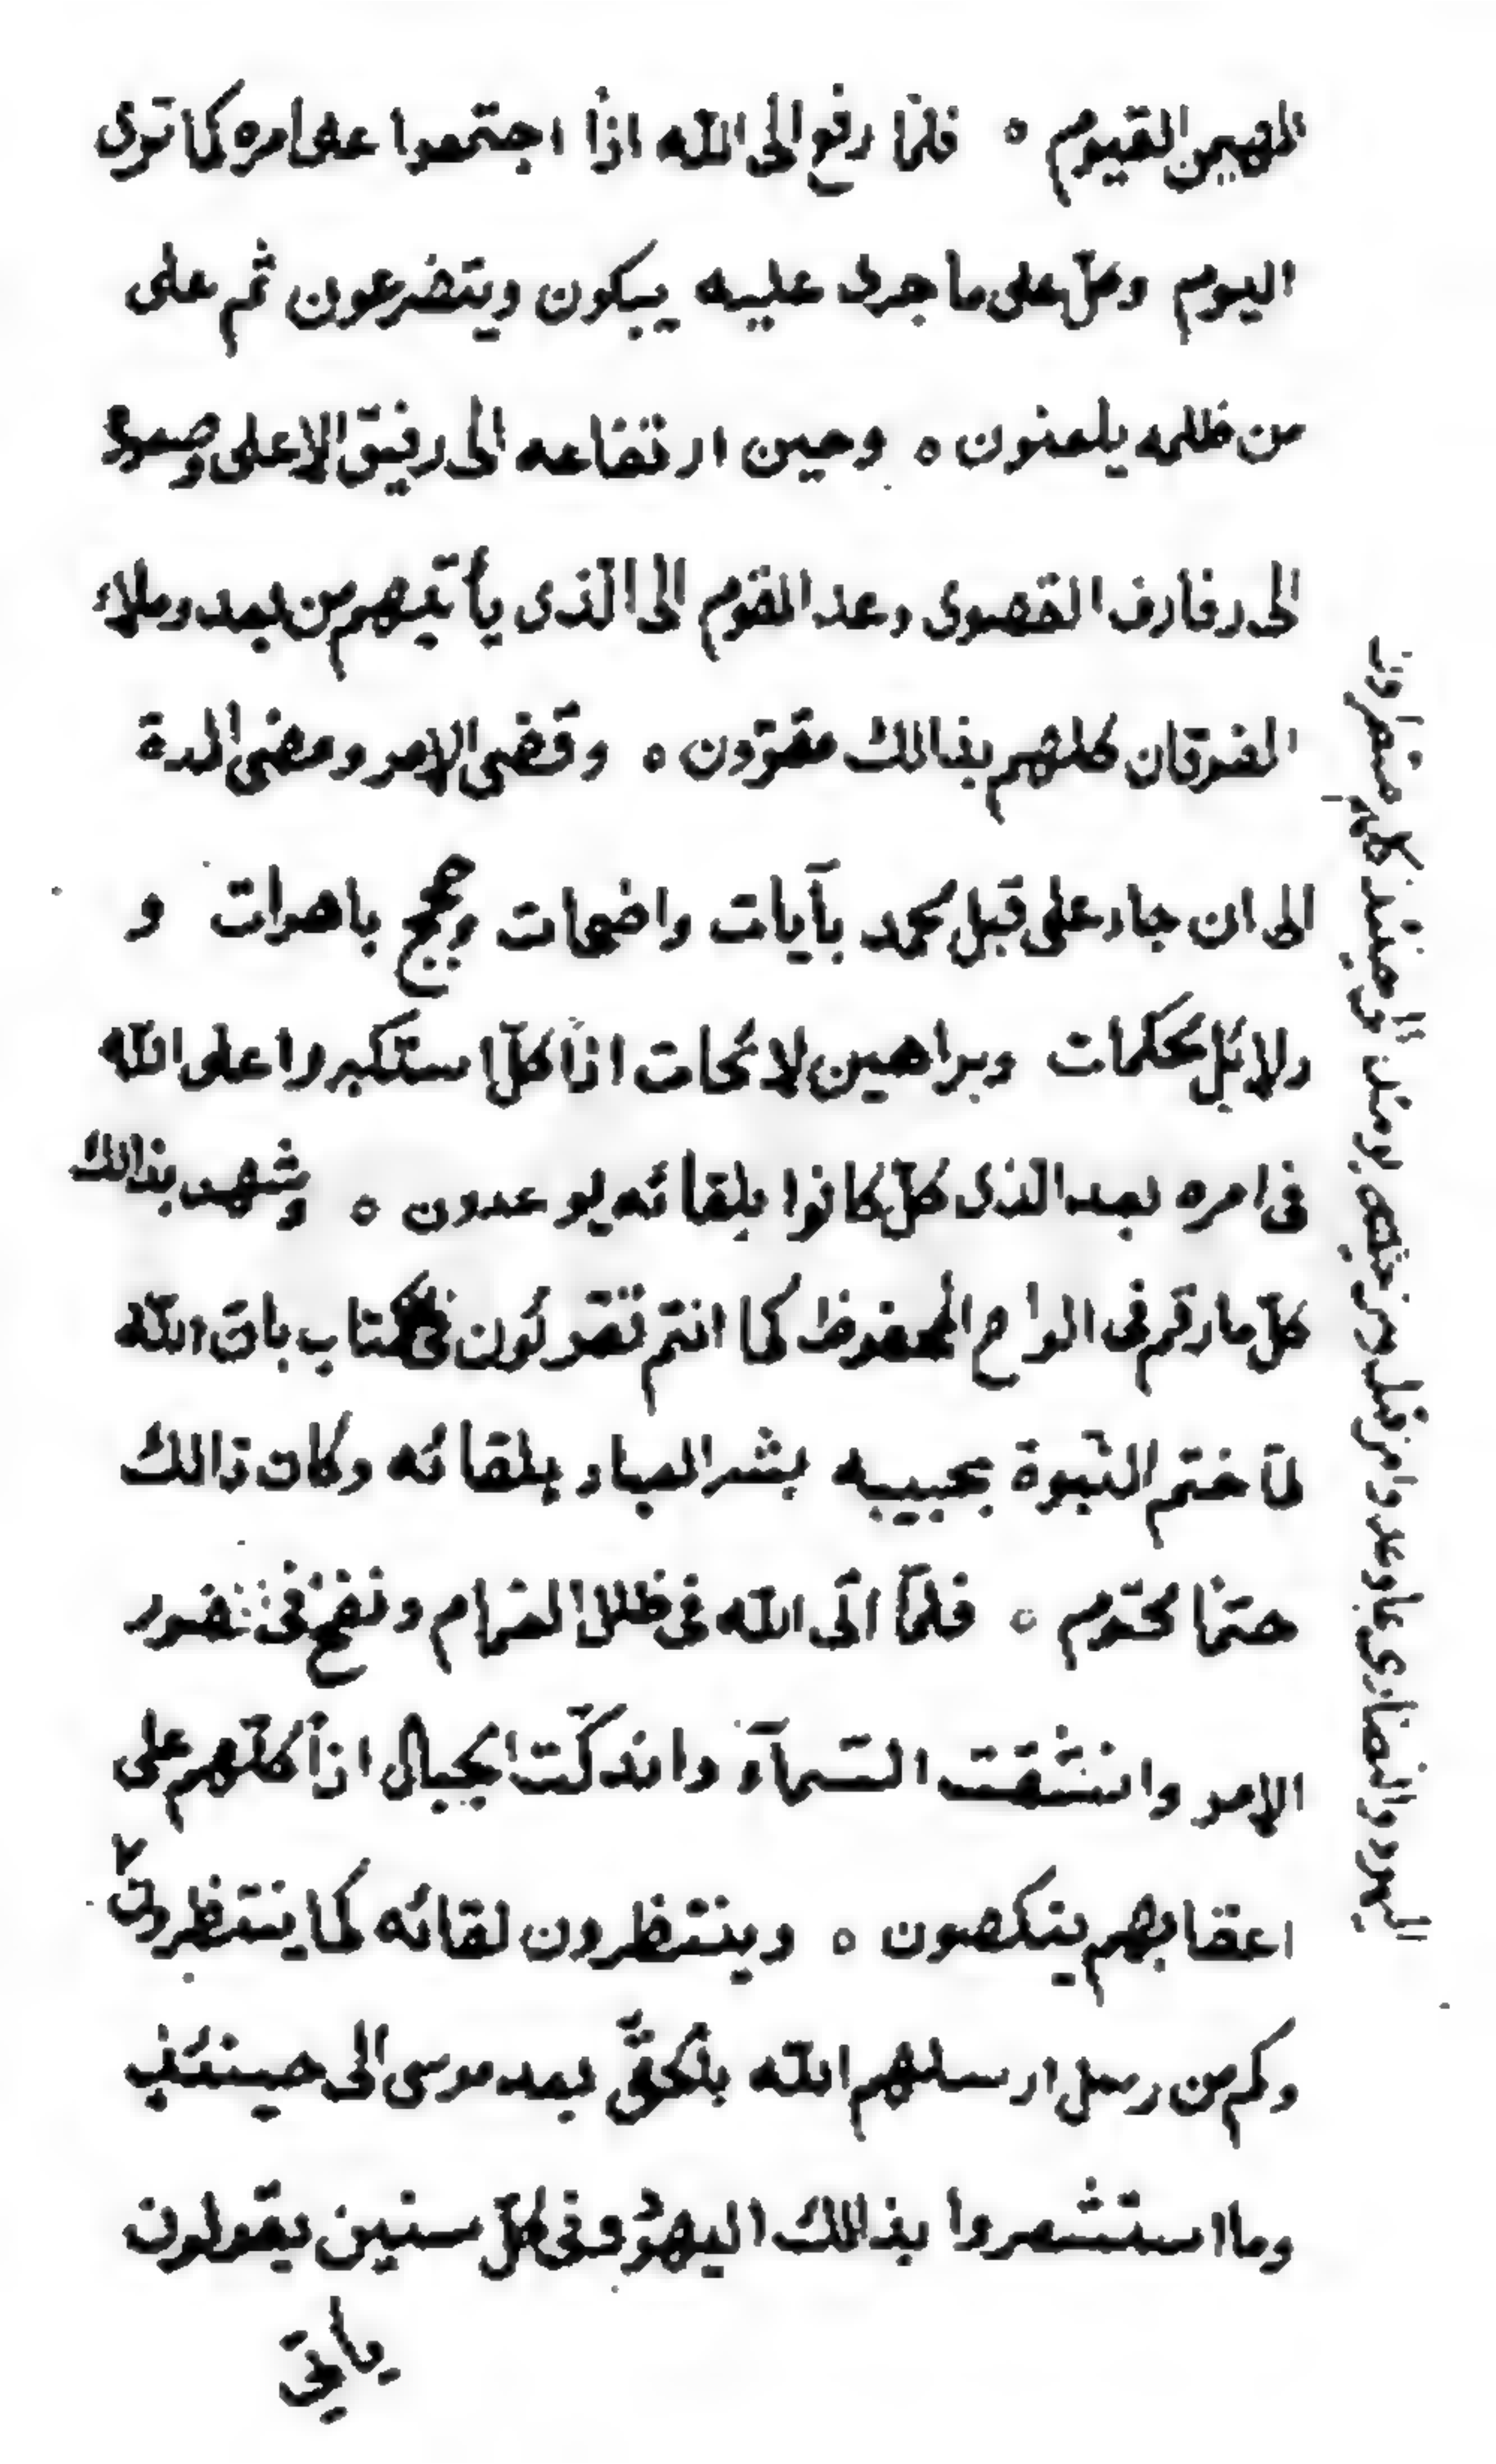 المهيمن القيوم ه فلمّا رفع الى الله اذاً اجتمعوا على امره كما ترى
اليوم وكلّ على ما جرى عليه يبكون ويتضرعون ثم على
من ظلمه يلعنون ه وحين ارتفاعه الى رفيق الاعلى وصعوده
الى رفارف القصوى وعد القوم الى الّذى يأتيهم من بعد وملاء
الفرقان كلهم بذالك مقرّون ه وقضى الامر ومضى المدة
الى ان جاء على قبل محمد بآيات واضحات وحجج باهرات و
دلائل محكمات وبراهين لائحات اذاً كلّ استكبروا على الله
فى امره بعد الذى كلّ كانوا بلقائه يوعدون ه وشهد بذالك
كلّ ما رقم فى الواح المحفوظ كما انتم تقرئون فى الكتاب بانّ الله
لمّا ختم النّبوة بحبيبه بشر العباد بلقائه وكان ذالك
حتماً محتوم ه فلمّا اتى الله فى ظلل الغمام ونفخ فى صور
الامر وانشقت السّمآء واندكّت الجبال اذاً كلّهم على
اعقابهم ينكصون ه وينتظرون لقائه كما ينتظرون ٢
وكم من رسل ارسلهم الله بالحقّ بعد موسى الى حينئذ
وما استشعروا بذالك اليهود وفى كلّ سنين يقولون
ياتى
اليهود والنصارى بما وعدوا من قبل ومن يومئذ الى حينئذ كلهم منتظرون